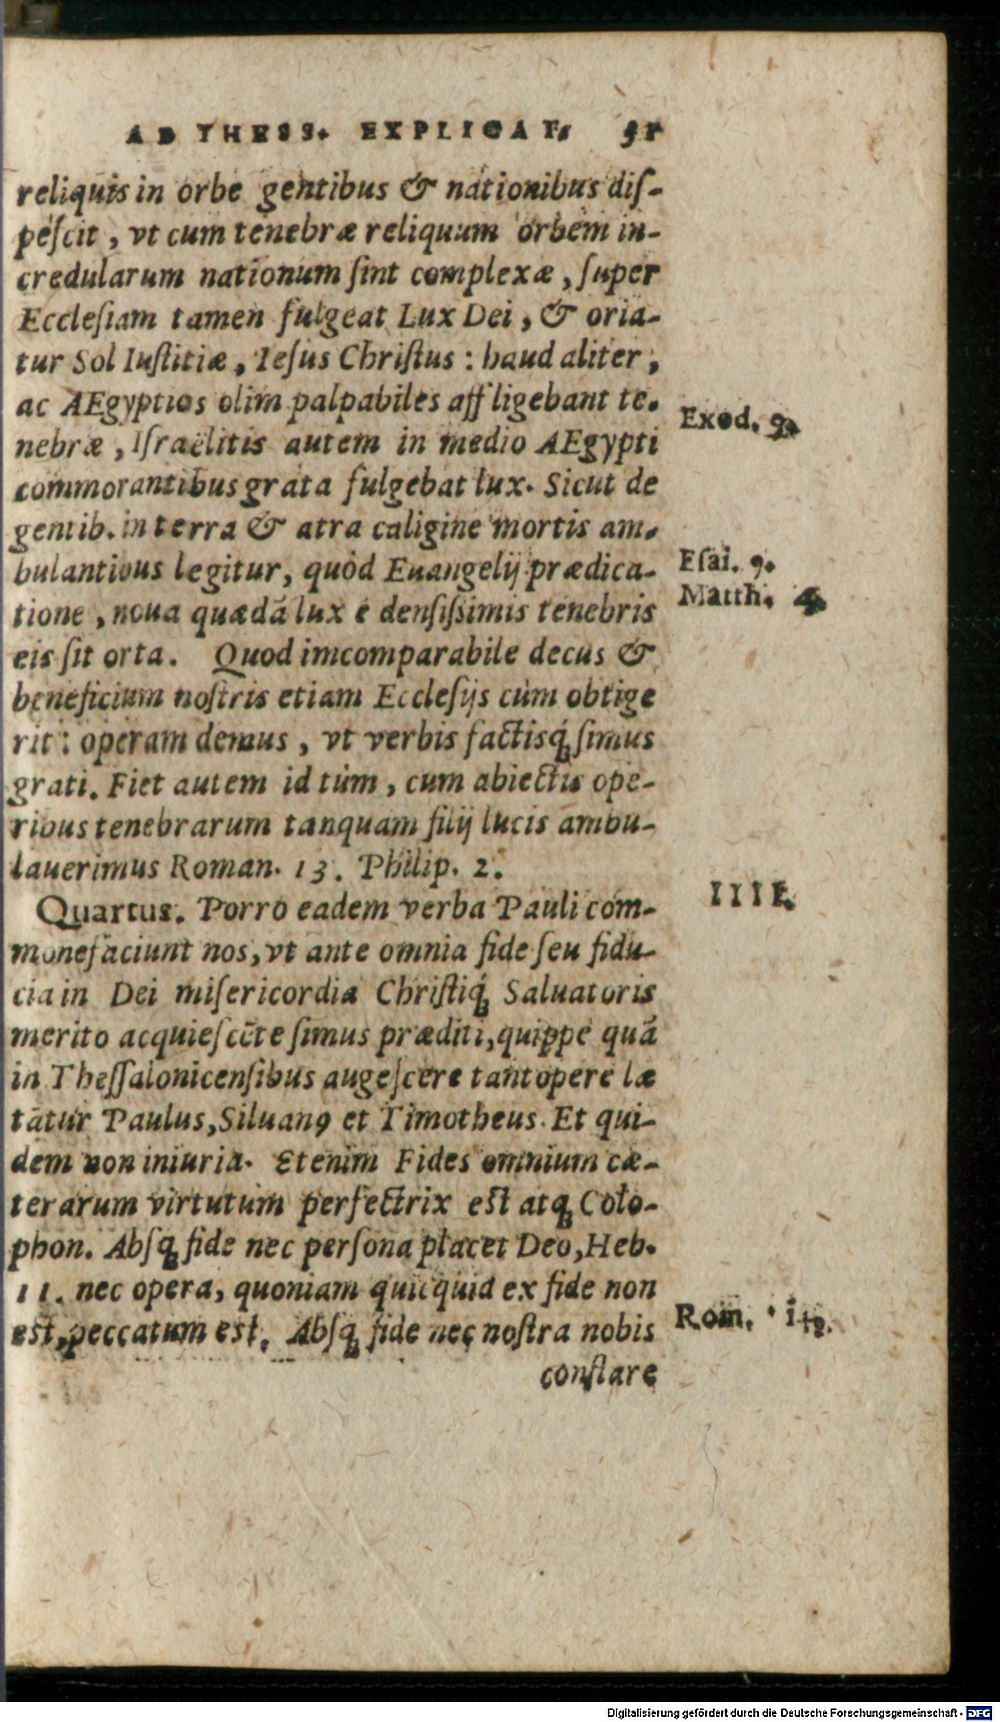 AD THESS. EXPLICAT. 51
reliquis in orbe gentibus & nationibus diſ-
peſcit, vt cum tenebræ reliquum orbem in-
credularum nationum ſint complexæ, ſuper
Eccleſiam tamen fulgeat Lux Dei, & oria-
tur Sol Iuſtitiæ, Ieſus Chriſtus: haud aliter,
ac AEgyptios olim palpabiles affligebant te-
nebræ, Iſraëlitis autem in medio AEgypti
Exod. 9.
commorantibus grata fulgebat lux. Sicut de
gentib. in terra & atra caligine mortis am-
bulantibus legitur, quòd Euangelij prædica-
Eſai. 9.
tione, noua quædā lux è denſiſsimis tenebris
Matth. 4.
eis ſit orta. Quod imcomparabile decus &
beneficium noſtris etiam Eccleſijs cùm obtige
rit: operam demus, vt verbis factisq́ꝫ ſimus
grati. Fiet autem id tùm, cum abiectis ope-
ribus tenebrarum tanquam filij lucis ambu-
lauerimus Roman. 13. Philip. 2.
Quartus. Porrò eadem verba Pauli com-
IIII.
monefaciunt nos, vt ante omnia fide ſeu fidu-
cia in Dei miſericordia Chriſtiq́ꝫ Saluatoris
merito acquieſcēte ſimus præditi, quippe quā
in Theſſalonicenſibus augeſcere tantopere læ
tātur Paulus, Siluanꝰ et Timotheus. Et qui-
dem non iniuria. Etenim Fides omnium cæ-
terarum virtutum perfectrix eſt atqꝫ Colo-
phon. Abſqꝫ fide nec perſona placet Deo, Heb.
11. nec opera, quoniam quicquid ex fide non
eſt, peccatum eſt. Abſqꝫ fide nec noſtra nobis
Rom. 14.
conſtare
Digitalisierung gefördert durch die Deutsche Forschungsgemeinschaft - DFG